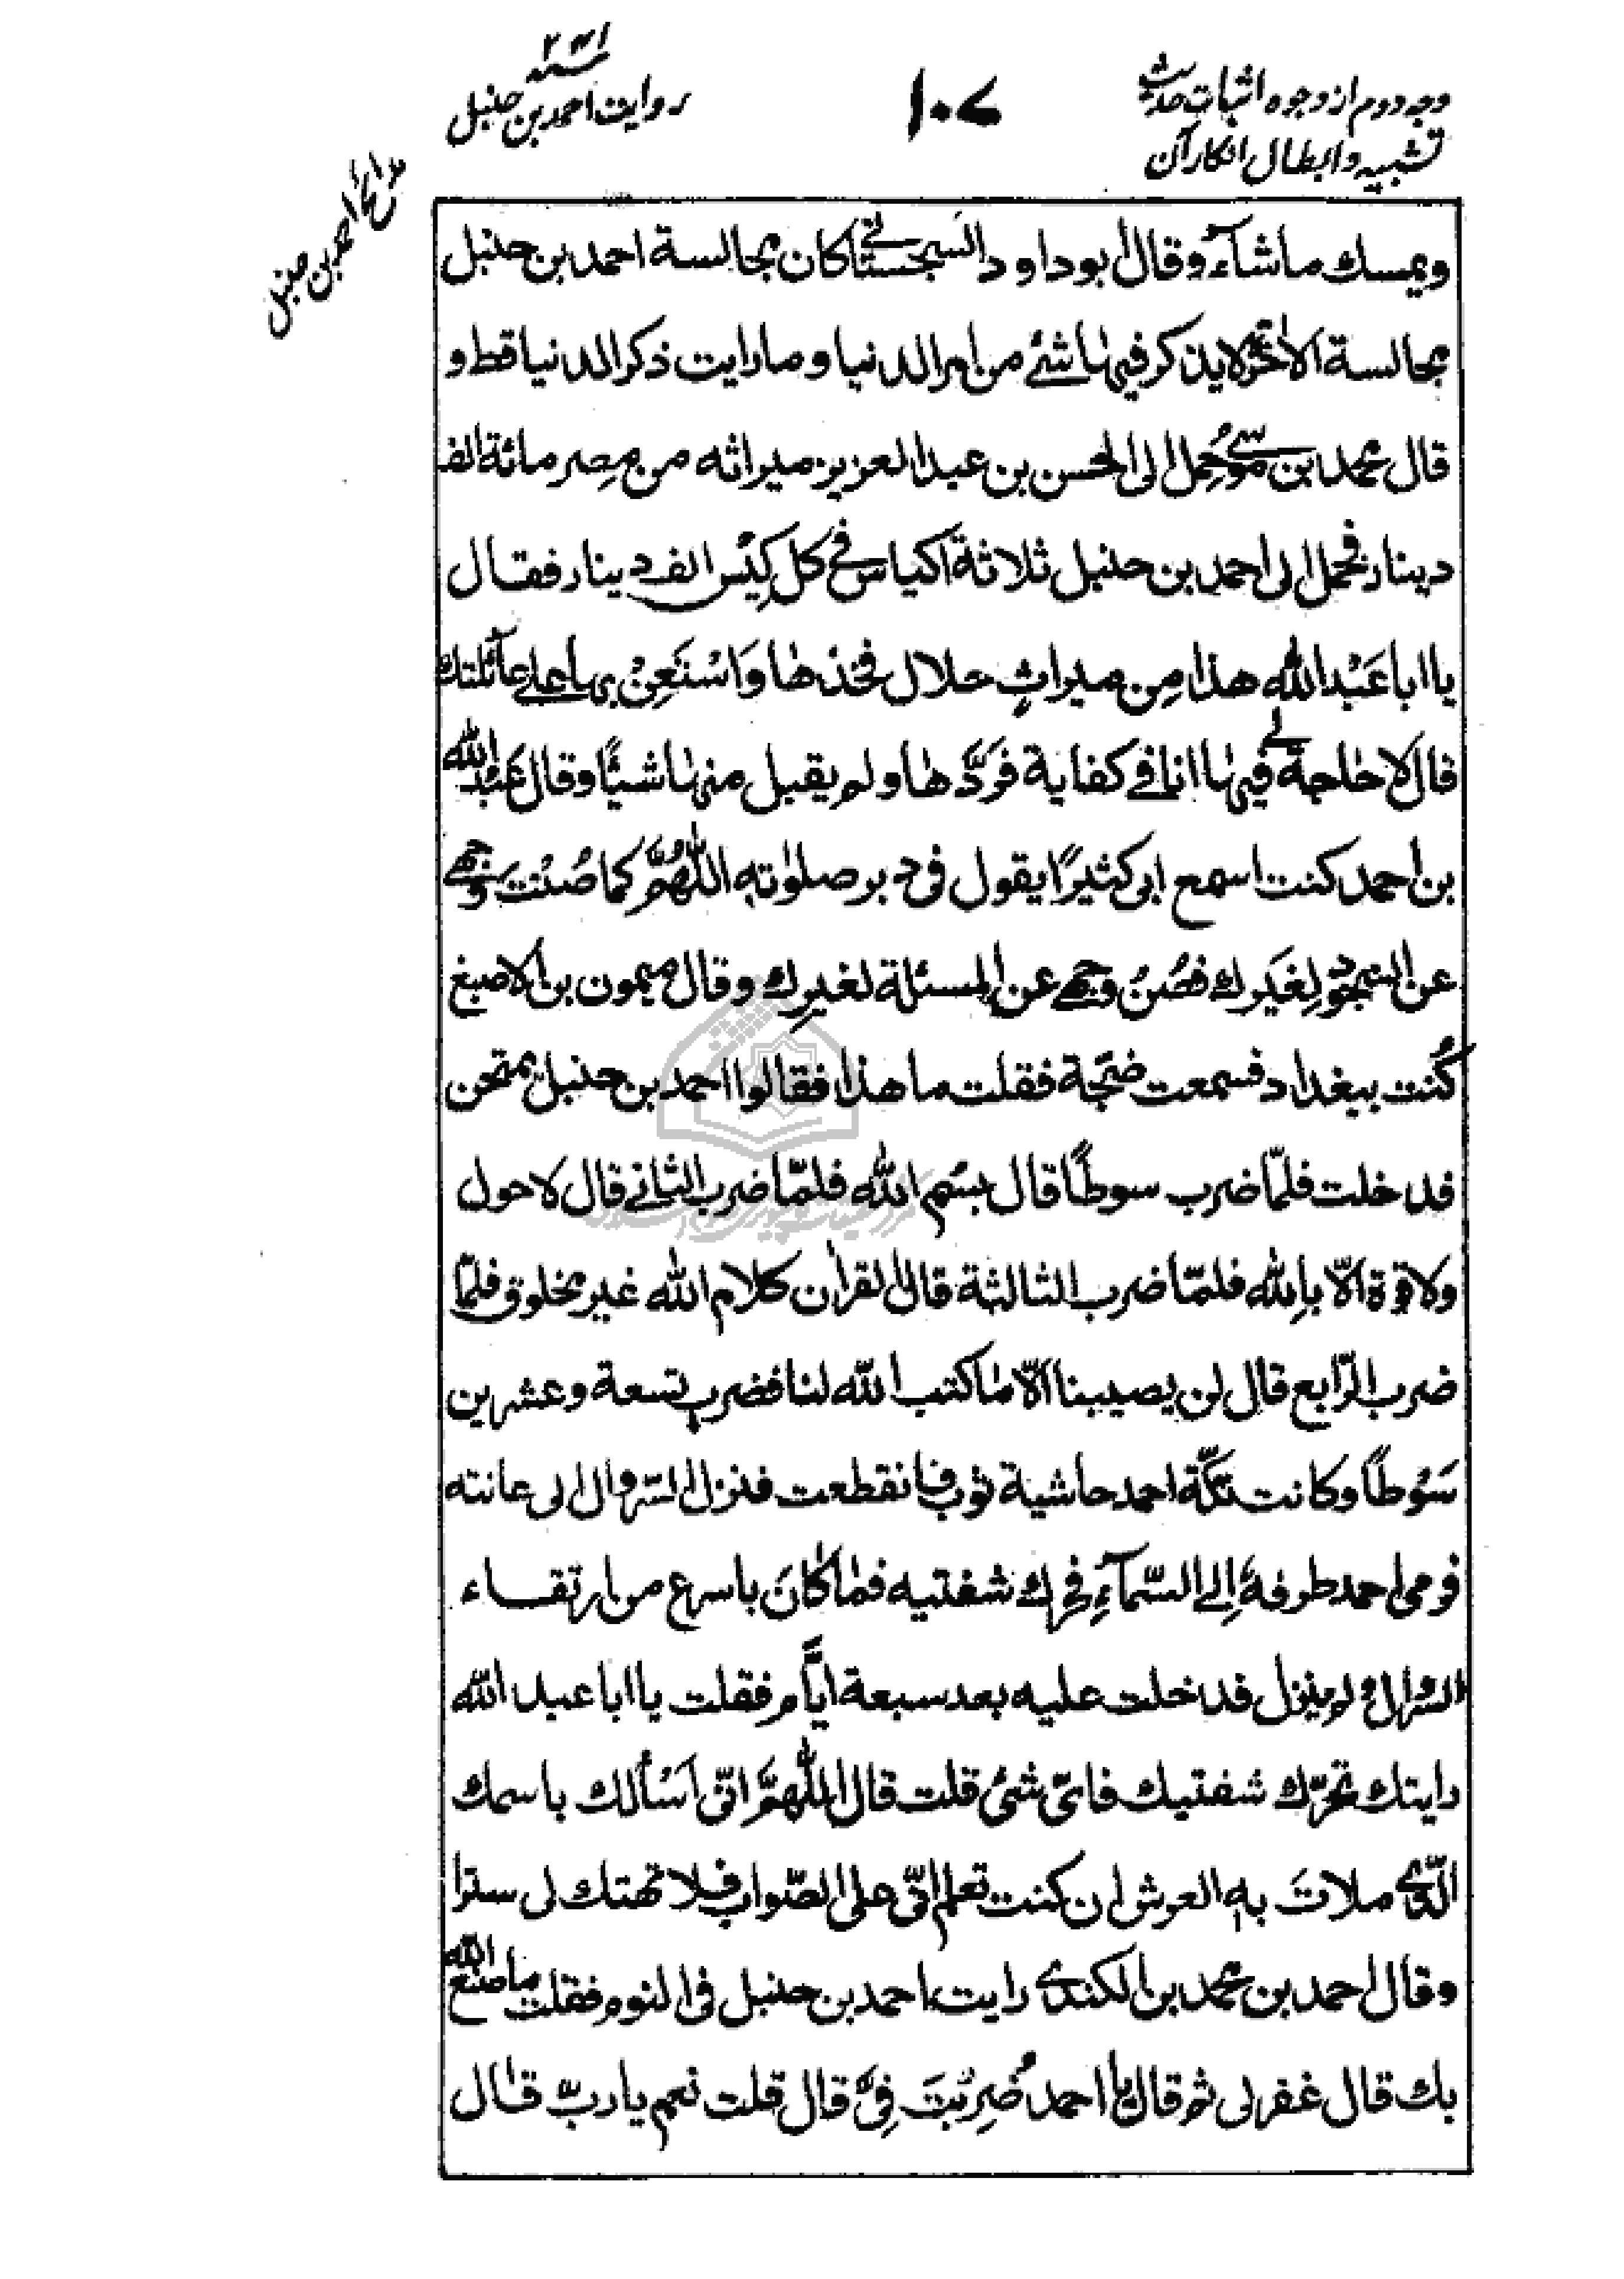 وجه دوم از وجوه اثبات حدیث
تشبیه و ابطال انکار آن
۱۰۷
سنه ۲۴۱
روایت احمد بن حنبل
مدائح احمد بن حنبل
ویمسك ما شآء وقال ابو داود السجستانے کان مجالسة احمد بن حنبل
مجالسة الاٰخرة لا یذکر فیهٰا شئے من امر الدنیا وما رایت ذکر الدنیا قط و
قال محمد بن موسے حُمِل الی الحسن بن عبد العزیز میراثه من مِصر مائة الف
دینار فحمل الی احمد بن حنبل ثلاثة اکیاس فے کل کِیْس الف دینار فقال
یا ابا عَبْد الله هذا مِن میراثٍ حلال فخذهٰا وَاسْتَعِنْ بهٰا علے عآئلتك
قال لا حٰاجة لے فیهٰا انا فے کفایة فَرَدَّهٰا ولم یقبل منهٰا شیئًا وقال عَبْد الله
بن احمد کنت اسمع ابی کثیرًا یقول فی دبر صلوٰته اللّٰهُمَّ کما صُنْت وَجهے
عن السجود لِغَیرك فصُنْ وجهے عن المسئلة لغیرِك وقال میمون بن الاصبغ
کُنت ببغداد فسمعت ضَجّة فقلت ما هذا فقالوا احمد بن حنبل یمتحن
فدخلت فلمّا ضرب سوطًا قال بسْمِ الله فلمّا ضرب الثانے قال لا حول
ولا قوة الّا باِلله فلمّا ضرب الثالثة قال القراٰن کلام الله غیر مخلوق فلمّا
ضرب الرّابع قال لن یصیبنا الّا مٰا کتب الله لنا فضرب تسعة وعشرین
سَوْطًا وکانت تکّة احمد حاشیة ثوب فانقطعت فنزل السّروال الی عانته
فرمی احمد طرفهُ اِلے السّمآءِ فحرك شفتیه فمٰا کٰانَ باسرع من ارتقاء
السروال ولم ینزل فدخلت علیه بعد سبعة ایّام فقلت یا ابا عبد الله
رایتك تحرّك شفتیك فایّ شئ قلت قال اللّٰهمَّ انّی اَسْألك باسمك
الّذی ملاتَ بهِ العرش ان کنت تعلم انّی علی الصّواب فلا تهتك لی سترا
وقال احمد بن محمد بن الکندی رایت احمد بن حنبل فی النوم فقلت ما صنع الله
بك قال غفر لی ثم قال یا احمد ضُرِبْتَ فِیَّ قال قلت نعم یا ربّ قال